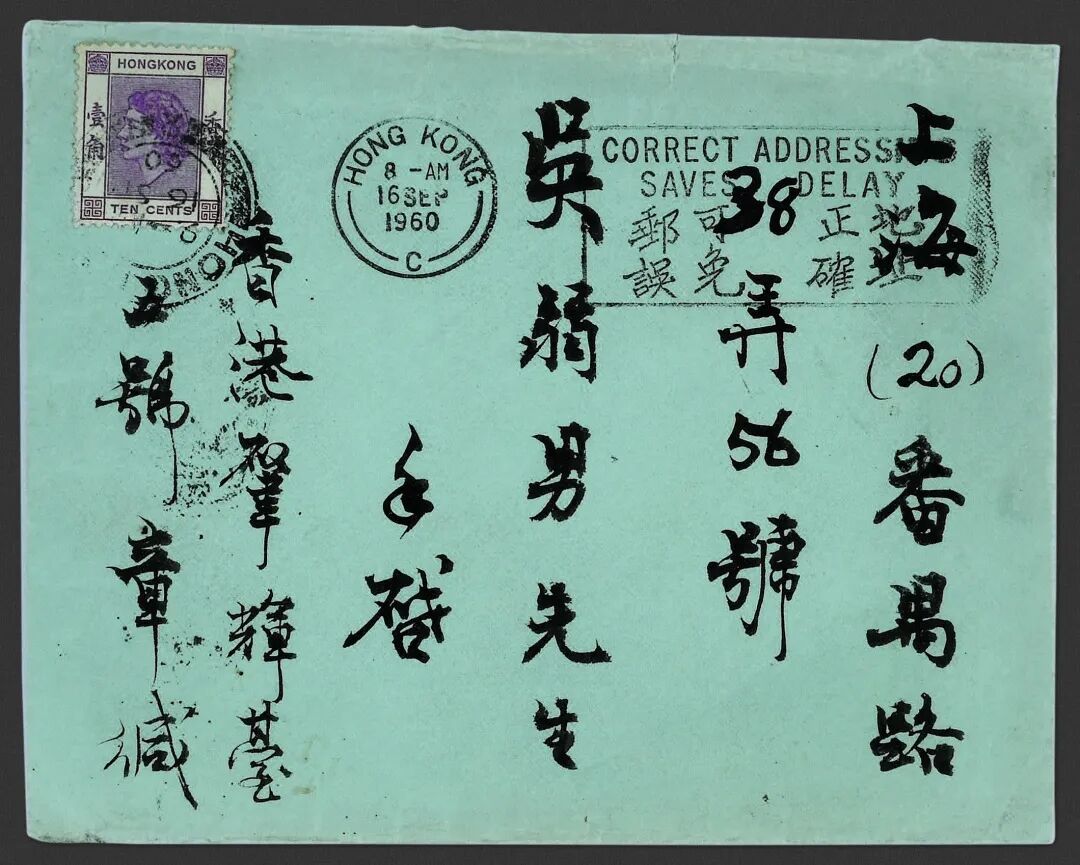 上海(20)番禺路
38弄56號
吳弱男先生
手啓
香港肇輝臺
五號章緘
HONGKONG
壹角
香
TEN CENTS
HONG KONG
8 - AM
16 SEP
1960
C
CORRECT ADDRESSING
SAVES DELAY
地址正確
可免郵誤